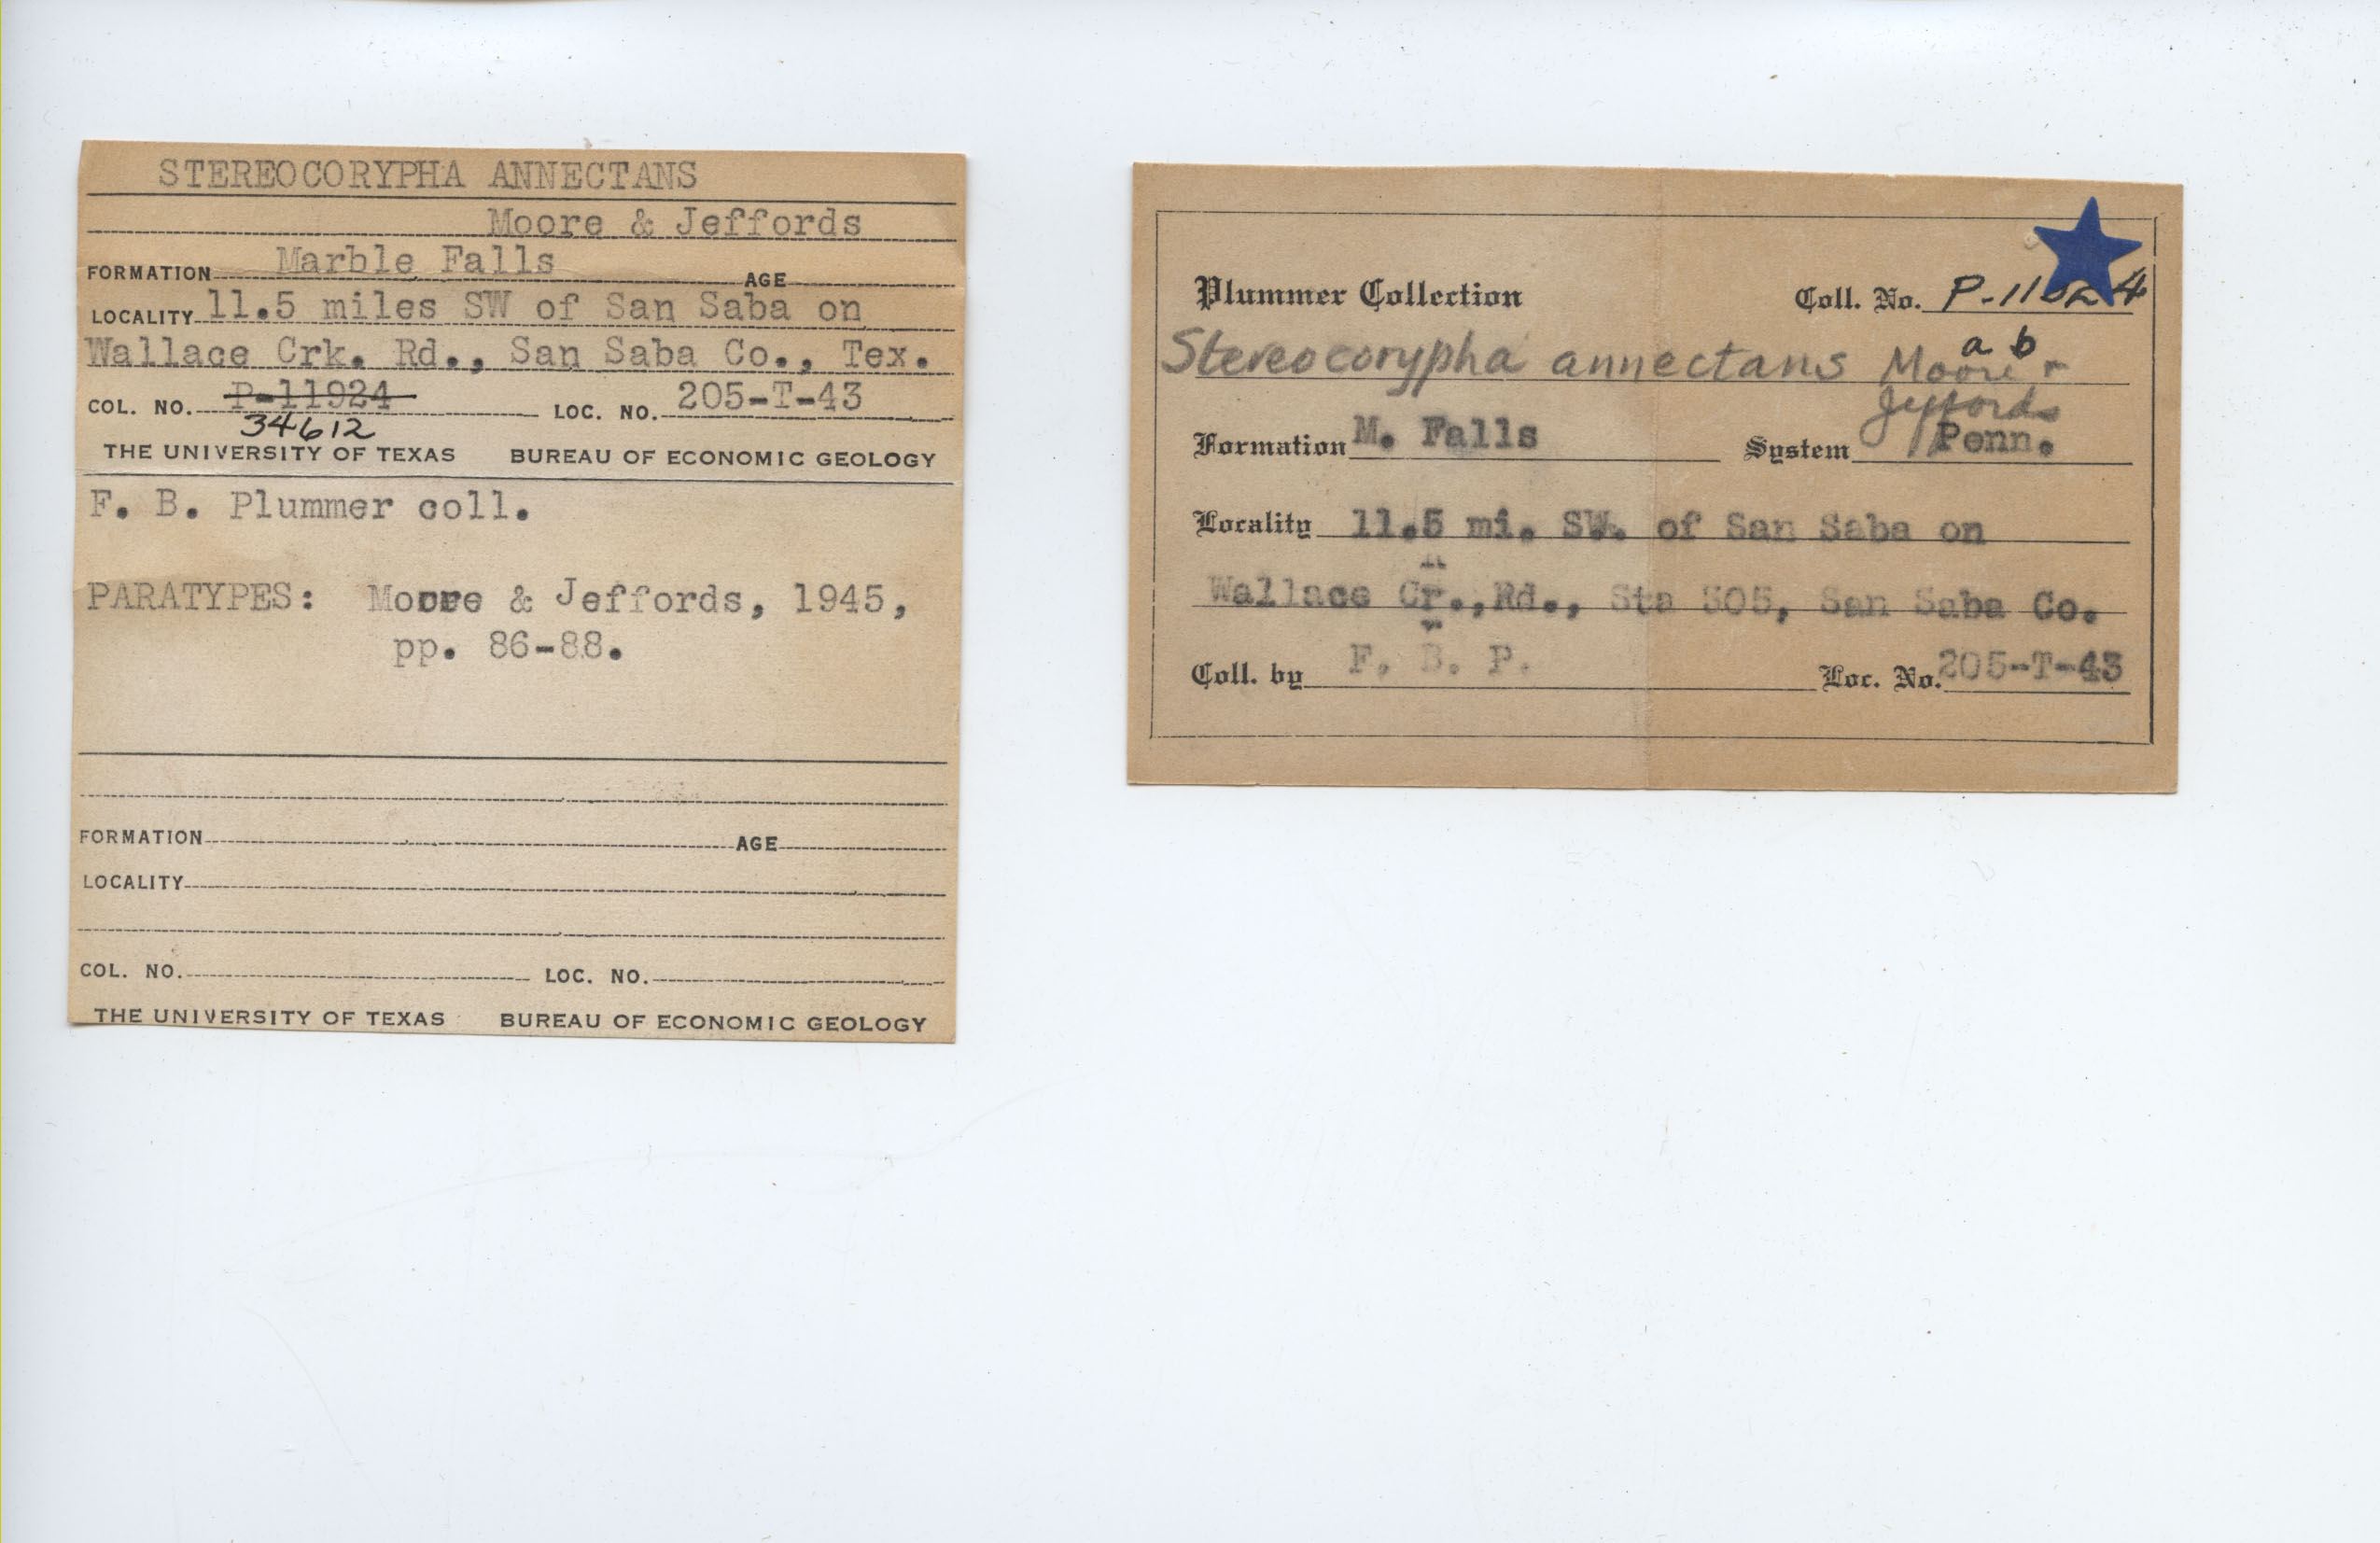 STEREOCORYPHA ANNECTANS
Moore & Jeffords
FORMATION Marble Falls AGE
LOCALITY 11.5 miles SW of San Saba on
Wallace Crk. Rd., San Saba Co., Tex.
COL. NO. P-11924 LOC. NO. 205-T-43
34612
THE UNIVERSITY OF TEXAS BUREAU OF ECONOMIC GEOLOGY
F. B. Plummer coll.
PARATYPES: Moore & Jeffords, 1945,
pp. 86-88.
FORMATION AGE
LOCALITY
COL. NO. LOC. NO.
THE UNIVERSITY OF TEXAS BUREAU OF ECONOMIC GEOLOGY
Plummer Collection Coll. No.
a b
Stereocorypha annectans Moore &
Jeffords
Formation M. Falls System Penn.
Locality 11.5 mi. SW. of San Saba on
Wallace Cr., Rd., Sta 505, San Saba Co.
Coll. by F. B. P. Loc. No. 205-T-43